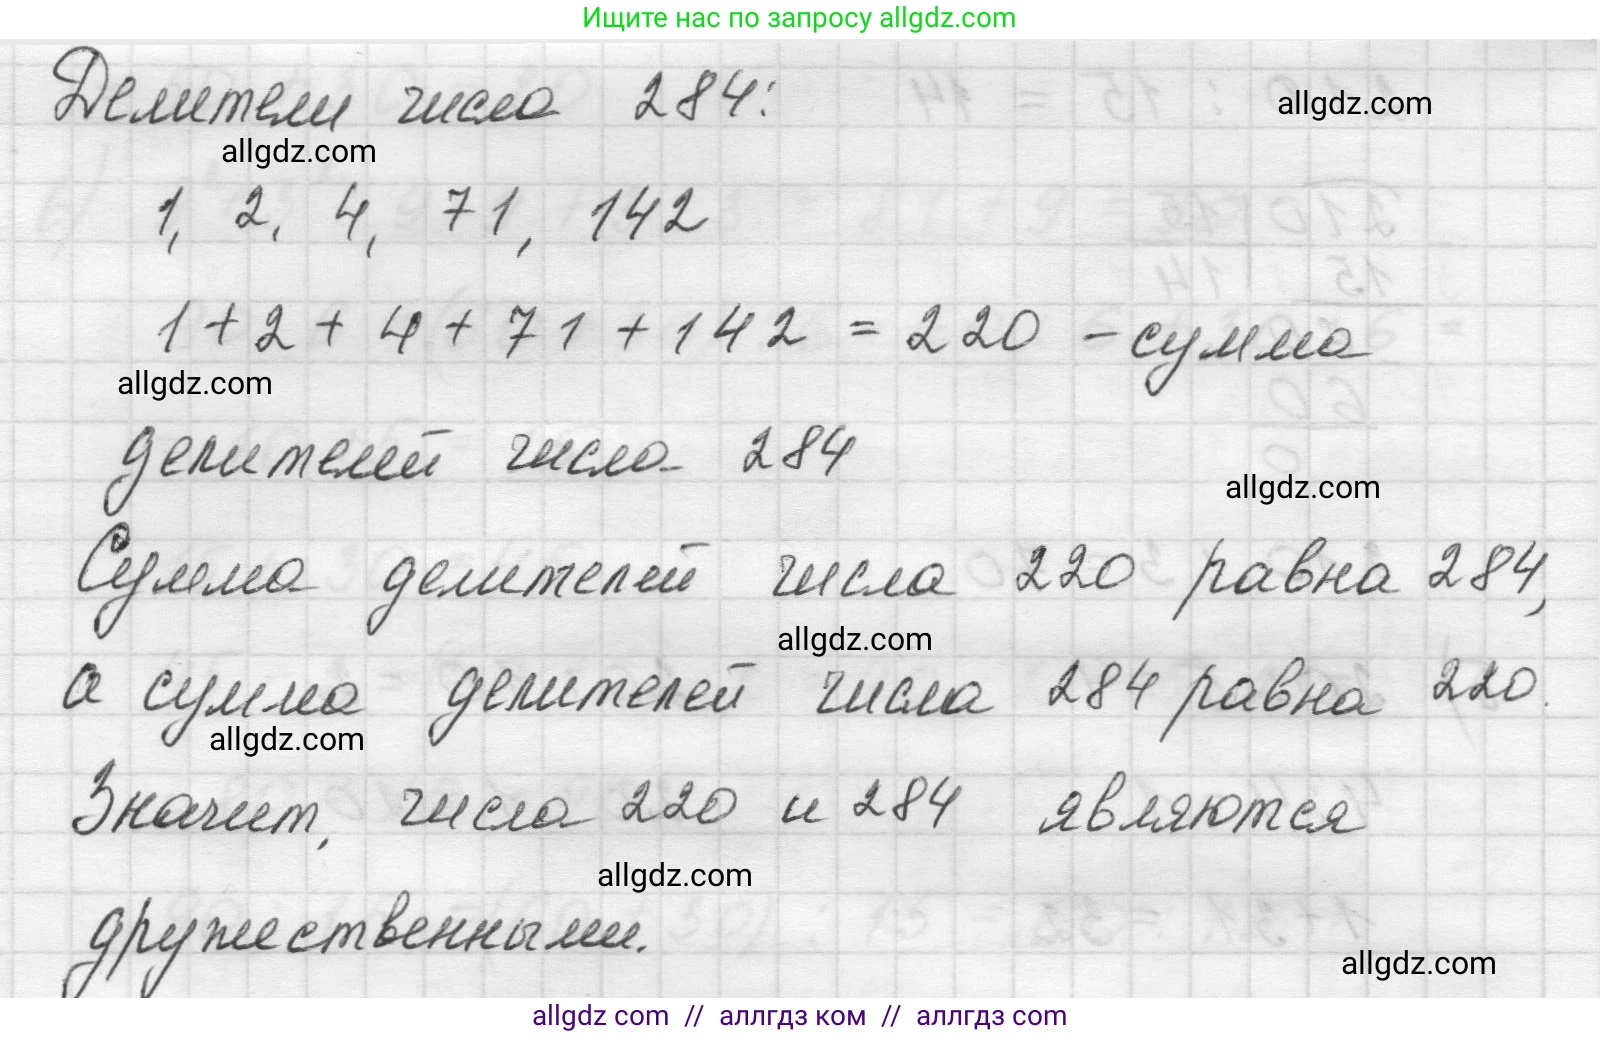 Ищите нас по запросу allgdz.com
Делители числа 284:
allgdz.com
allgdz.com
1, 2, 4, 71, 142
1+2+4+71+142 = 220 - сумма
allgdz.com
делителей числа 284
allgdz.com
Сумма делителей числа 220 равна 284,
allgdz.com
а сумма делителей числа 284 равна 220.
allgdz.com
Значит, числа 220 и 284 являются
allgdz.com
дружественными.
allgdz.com
allgdz com // аллгдз ком // аллгдз com